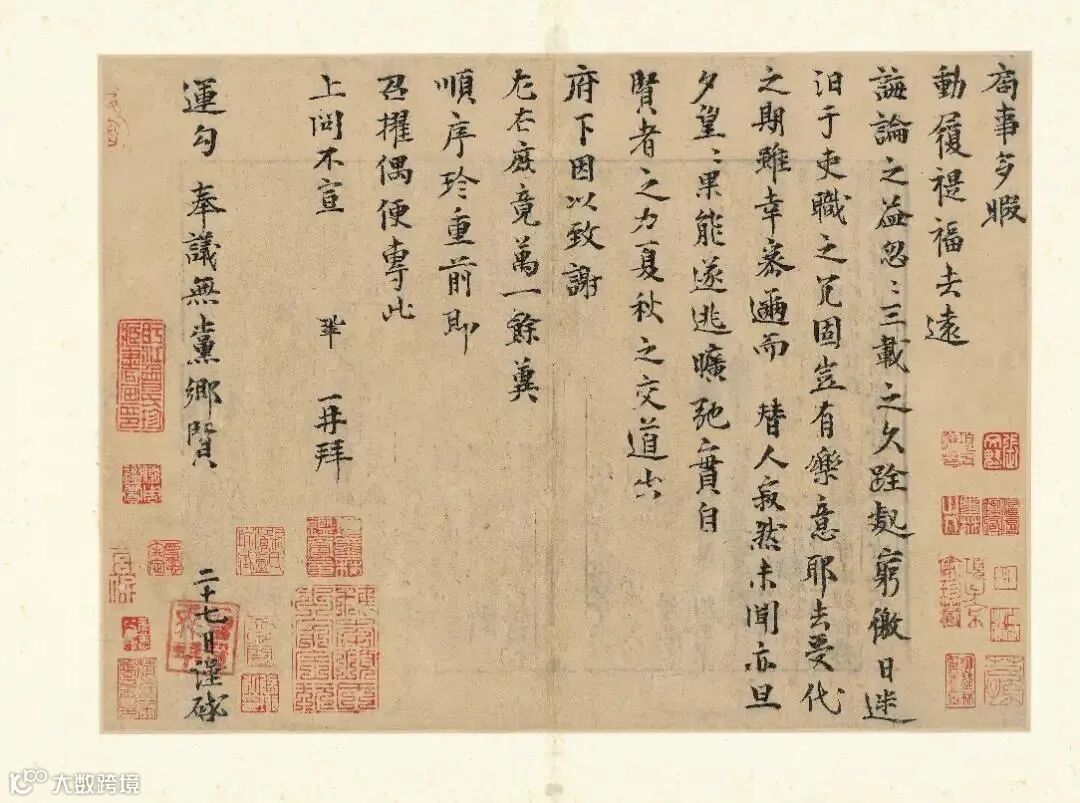 局事多暇
動履禔福去遠
誨論之益忽〻三載之久跧處窮徼日迷
汩于吏職之冗固豈有樂意耶去受代
之期雖幸密邇而 替人寂然未聞亦旦
夕望〻果能遂逃曠弛實自
賢者之力夏秋之交道出
府下因以致謝
左右庶竟萬一餘冀
順序珍重前即
召擢偶便專此
上問不宣 鞏 再拜
運勾 奉議無黨鄉賢
二十七日謹啓
大数跨境